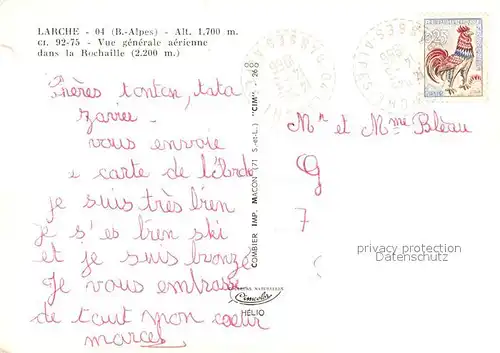 LARCHE - 04 (B.-Alpes) - Alt. 1.700 m.
CI. 92-75 - Vue générale aérienne
dans la Rochaille (2.200 m.)
chères tonton, tata
vous envoie
carte de
je suis très bien
je s'es bien ski
et je suis bronzé
je vous embrasse
de tout mon coeur
marcel
COMBIER IMP. MACON (71 S.-et-L.) "CIM" - 260
Cimcolor
HÉLIO
Mr et Mme Bléau
9
7
privacy protection
Datenschutz